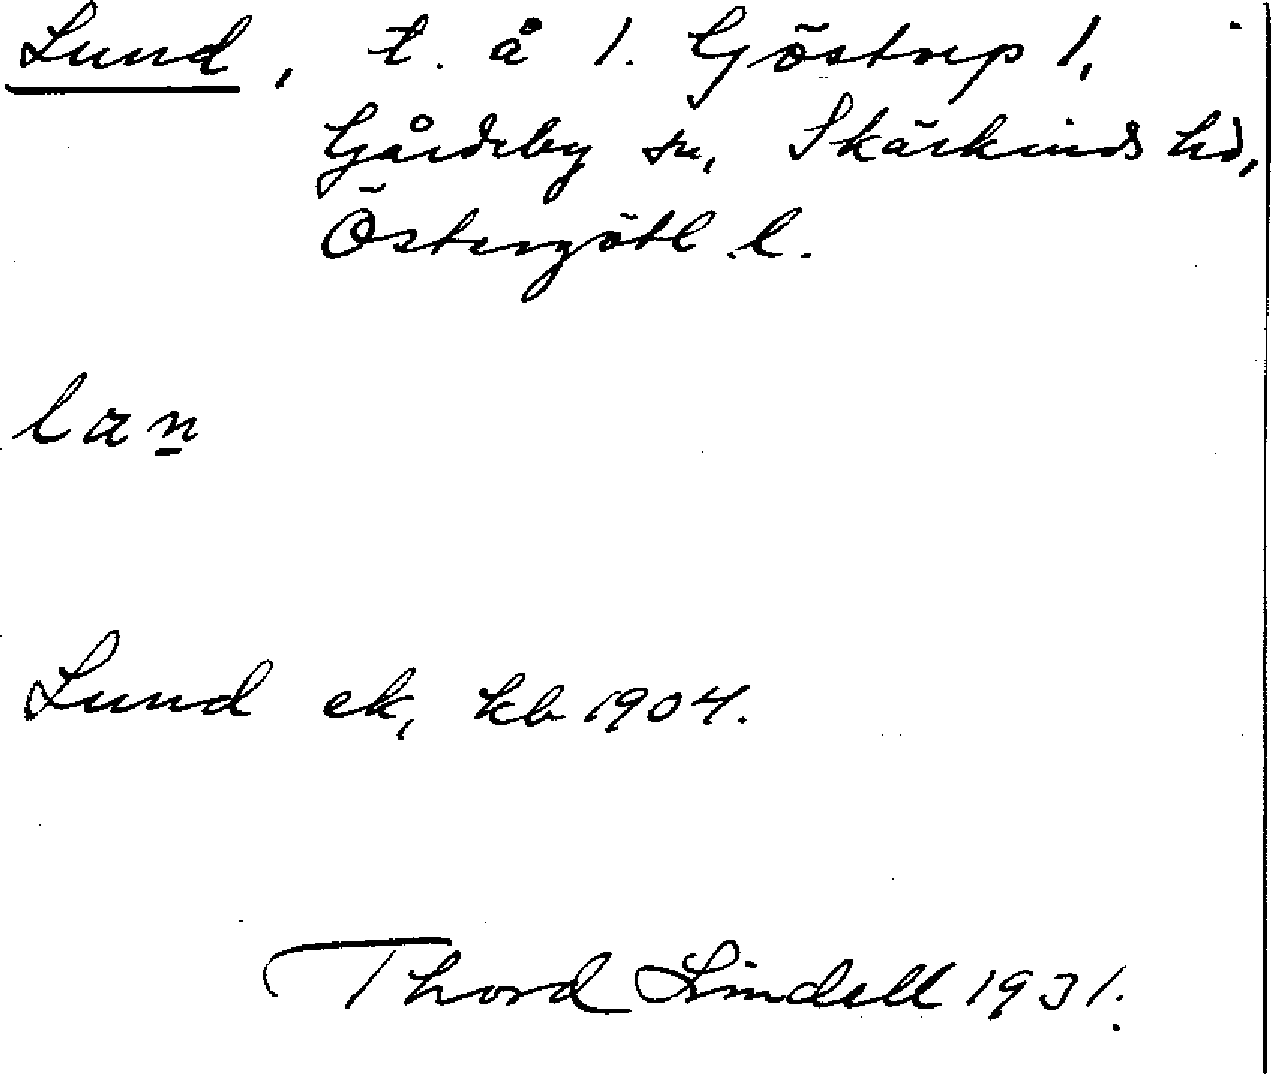 Lund, t. å 1. Göstrep 1,
Gårdeby sn, Skärkinds hd,
Östergötl. l.
lan
Lund ek, kb 1904.
Thord Lindell 1931.